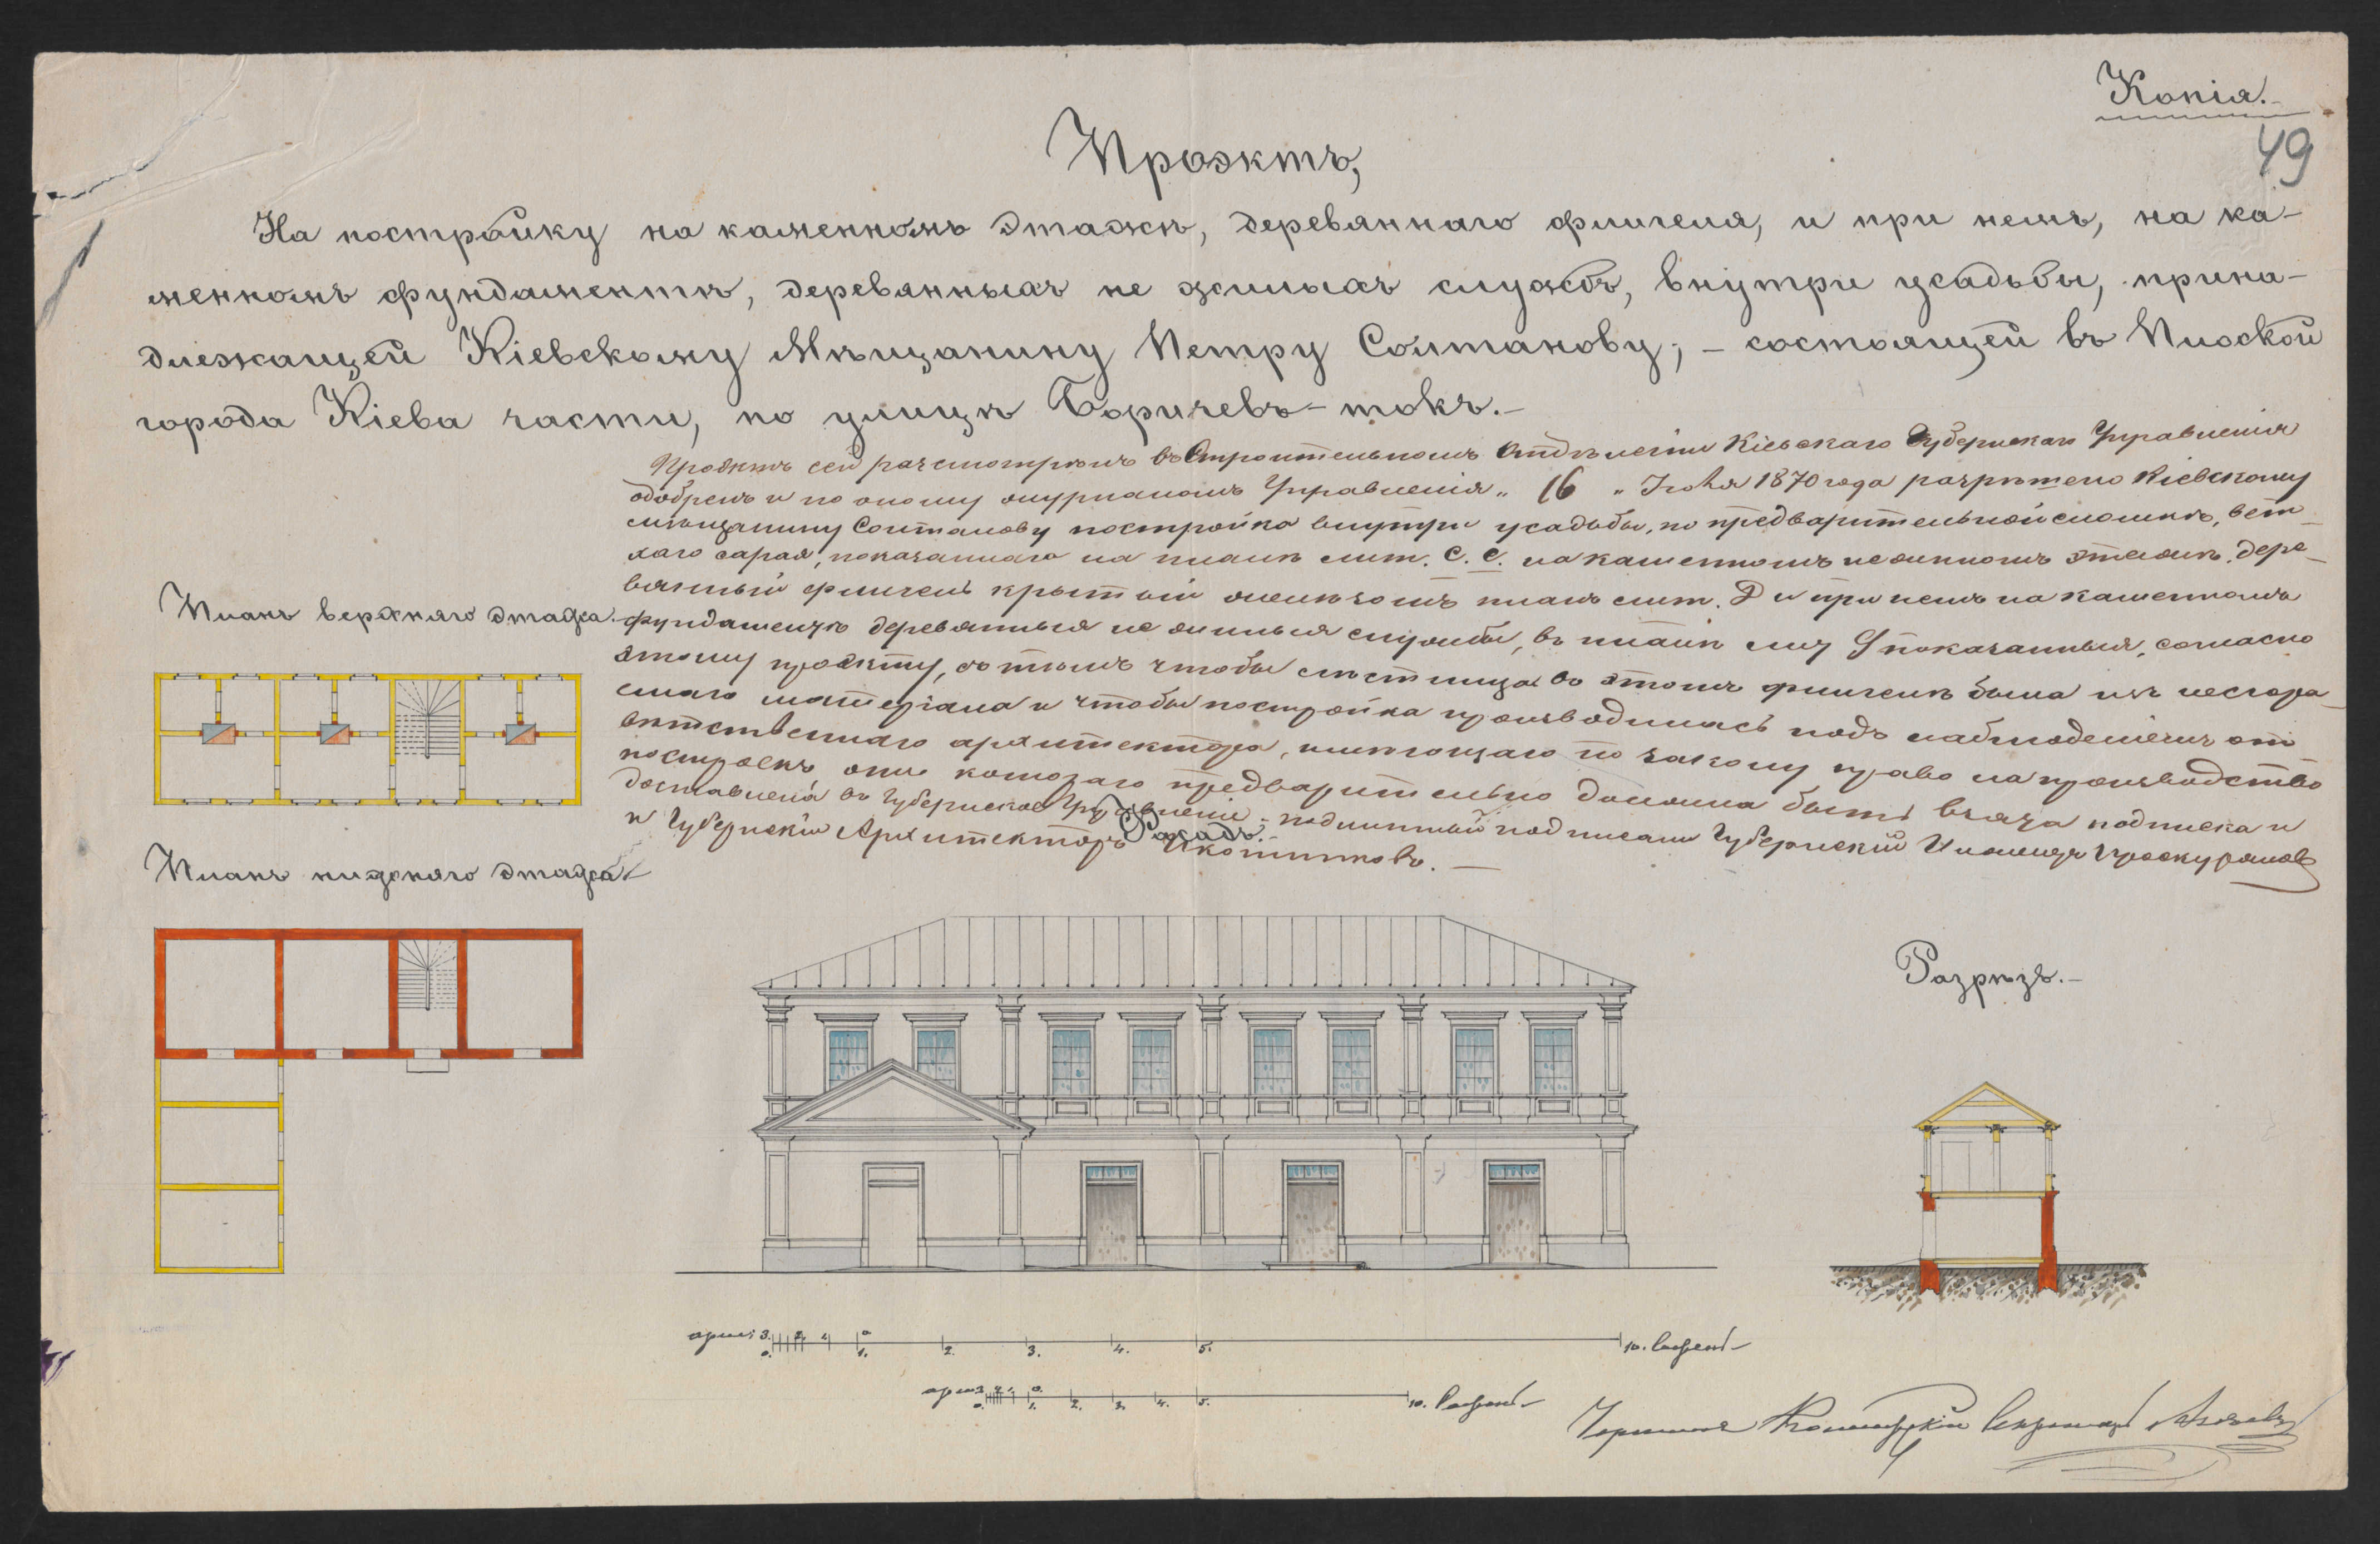 Копія.
49
Проэктъ,
На постройку на каменномъ этажѣ, деревяннаго флигеля, и при немъ, на ка-
менномъ фундаментѣ, деревянныхъ не жилыхъ службъ, внутри усадьбы, прина-
длежащей Кіевскому Мѣщанину Петру Солтанову; - состоящей въ Плоской
города Кіева части, по улицѣ Боричевъ-токъ.-
Проэктъ сей разсмотрѣнъ въ Строительномъ Отдѣленіи Кіевскаго Губернскаго Управленія
одобренъ и по оному журналомъ Управленія „ 16 „ Іюля 1870 года разрѣшено Кіевскому
мѣщанину Солтанову постройка внутри усадьбы, по предварительной сломкѣ, вет-
хаго сарая, показаннаго на планѣ лит. С. С. на каменномъ нежилномъ этажѣ, дере-
вянный флигель крытый желѣзомъ планъ лит. Д и при немъ на каменномъ
фундаментѣ деревянныя не жилыя службы, въ планѣ показанныя, согласно
этому проэкту, съ тѣмъ чтобы лѣстница въ этомъ флигелѣ была изъ несгора-
емаго матеріала и чтобы постройка производилась подъ наблюденіемъ от
вѣтственнаго архитектора, имѣющаго по закону право на производство
построекъ, отъ котораго предварительно должна быть взята подписка и
доставлена въ Губернское Управленіе, подлинный подписали Губернскій Инженеръ Проскуряковъ
и Губернскій Архитекторъ Икотниковъ. —
Планъ верхняго этажа.
Планъ нижняго этажа
Фасадъ.-
Разрѣзъ.-
арш: 3. 2. 1. 0
0. 1. 2. 3. 4. 5. 10. Сажень
арш 3. 2. 1. 0.
0. 1. 2. 3. 4. 5. 10. Сажень